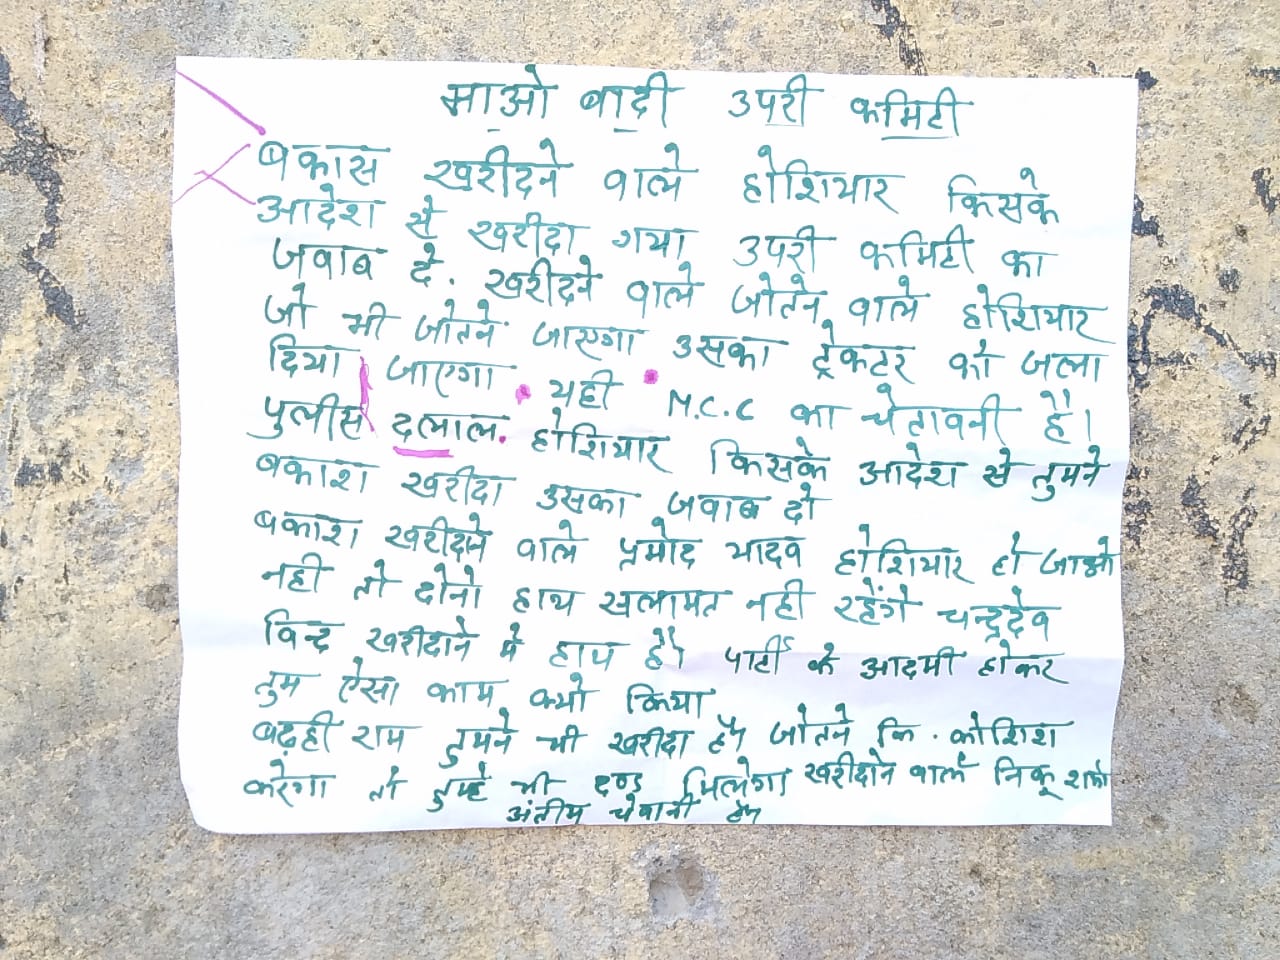 माओ बादी उपरी कमिटी
बकास खरीदने वाले होशियार किसके
आदेश से खरीदा गया उपरी कमिटी का
जवाब दे. खरीदने वाले जोतने वाले होशियार
जो भी जोतने जाएगा उसका ट्रेकटर को जला
दिया जाएगा यही M.C.C का चेतावनी है।
पुलीस दलाल. होशियार किसके आदेश से तुमने
बकाश खरीदा उसका जवाब दो
बकाश खरीदाने वाले प्रमोद यादव होशियार हो जाओ
नही तो दोनो हाथ खलामत नही रहेंगे चन्द्रदेव
विन्द खरीदाने मे हाथ है। पार्टी के आदमी होकर
तुम ऐसा काम क्यो किया
बढ़ही राम तुमने भी खरीदा है। जोतने कि. कोशिश
करेगा तो तुम्हे भी दण्ड मिलेगा खरीदाने वाले
अंतीम है।